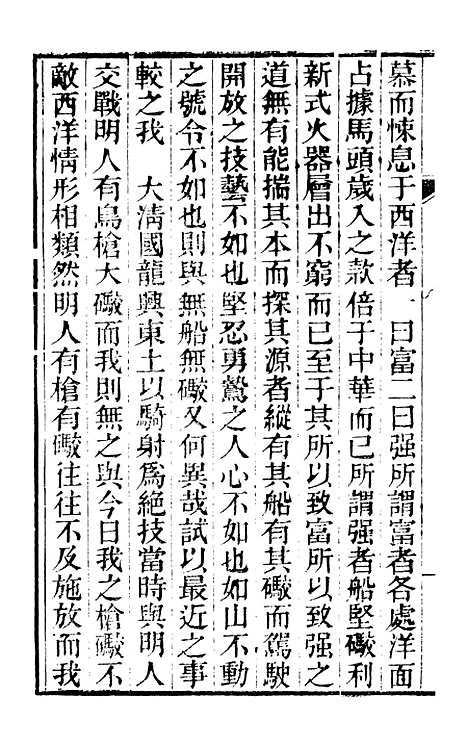 慕而悚息于西洋者一曰富二曰强所謂富者各處洋面
占據馬頭歲入之款倍于中華而已所謂强者船堅礮利
新式火器層出不窮而已至于其所以致富所以致强之
道無有能揣其本而探其源者縱有其船有其礮而駕駛
開放之技藝不如也堅忍勇鷙之人心不如也如山不動
之號令不如也則與無船無礮又何異哉試以最近之事
較之我　大淸國龍興東土以騎射爲絕技當時與明人
交戰明人有鳥槍大礮而我則無之與今日我之槍礮不
敵西洋情形相類然明人有槍有礮往往不及施放而我